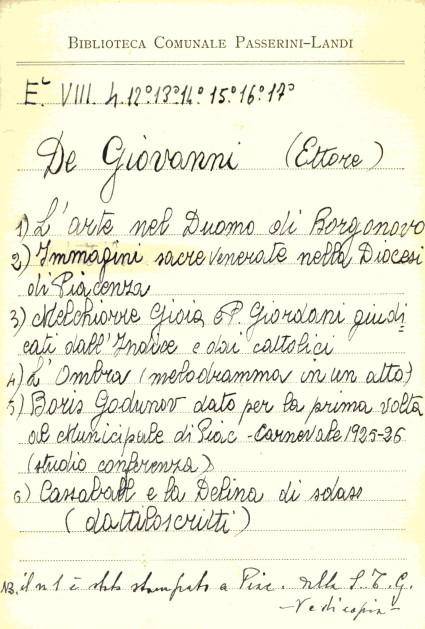 BIBLIOTECA COMUNALE PASSERINI-LANDI
E` VIII. 4. 12° 13° 14° 15° 16° 17°
De Giovanni (Ettore)
1) L'arte nel Duomo di Borgonovo
2) Immagini sacre venerate nella Diocesi
di Piacenza
3) Melchiorre Gioia e P. Giordani giudi=
cati dall'Indice e dai cattolici
4) L'Ombra (melodramma in un atto)
5) Boris Godunov dato per la prima volta
al Municipale di Piac - Carnevale 1925-26
(studio conferenza)
6) Cassaball e la Delina di sdass
(dattiloscritti)
NB. il n 1 è stato stampato a Piac. dalla S. T. G.
- Vedi copia -